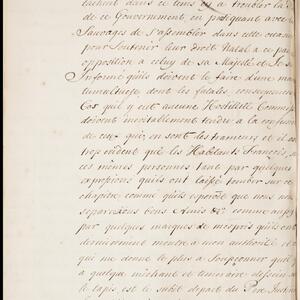 tachent dans ce tems icy a troubler la
de ce Gouvernement, en pratiquant avec les
Sauvages de s'assembler dans cette occasion
pour Soutenir leur Droit Natal a ce pais
opposition a celuy de sa Majesté et Je suis
Informé qu'ils doivent le faire d'une man
tumultueuse dont les fatales consequences
Cas qu'il y eut aucune Hostilité Commise
doivent inevitablement tendre a la confusion
de ceux qui en sont des trameurs et il est
trop evident que les Habitants François
ces mêmes personnes tant par quelques
expressions qu'ils ont laissé tomber sur ce
chapitre comme qu'ils esperoit que nous nous
separerions bons Amis &c. comme aussy
par quelques marques de mepris qu'ils ont
dernierement montré a mon authorité et
qui me donne le plus a Soupçonner qu'il
a quelque mechant et temeraire dessein
le tapis, est le subit depart du Pere Justinien